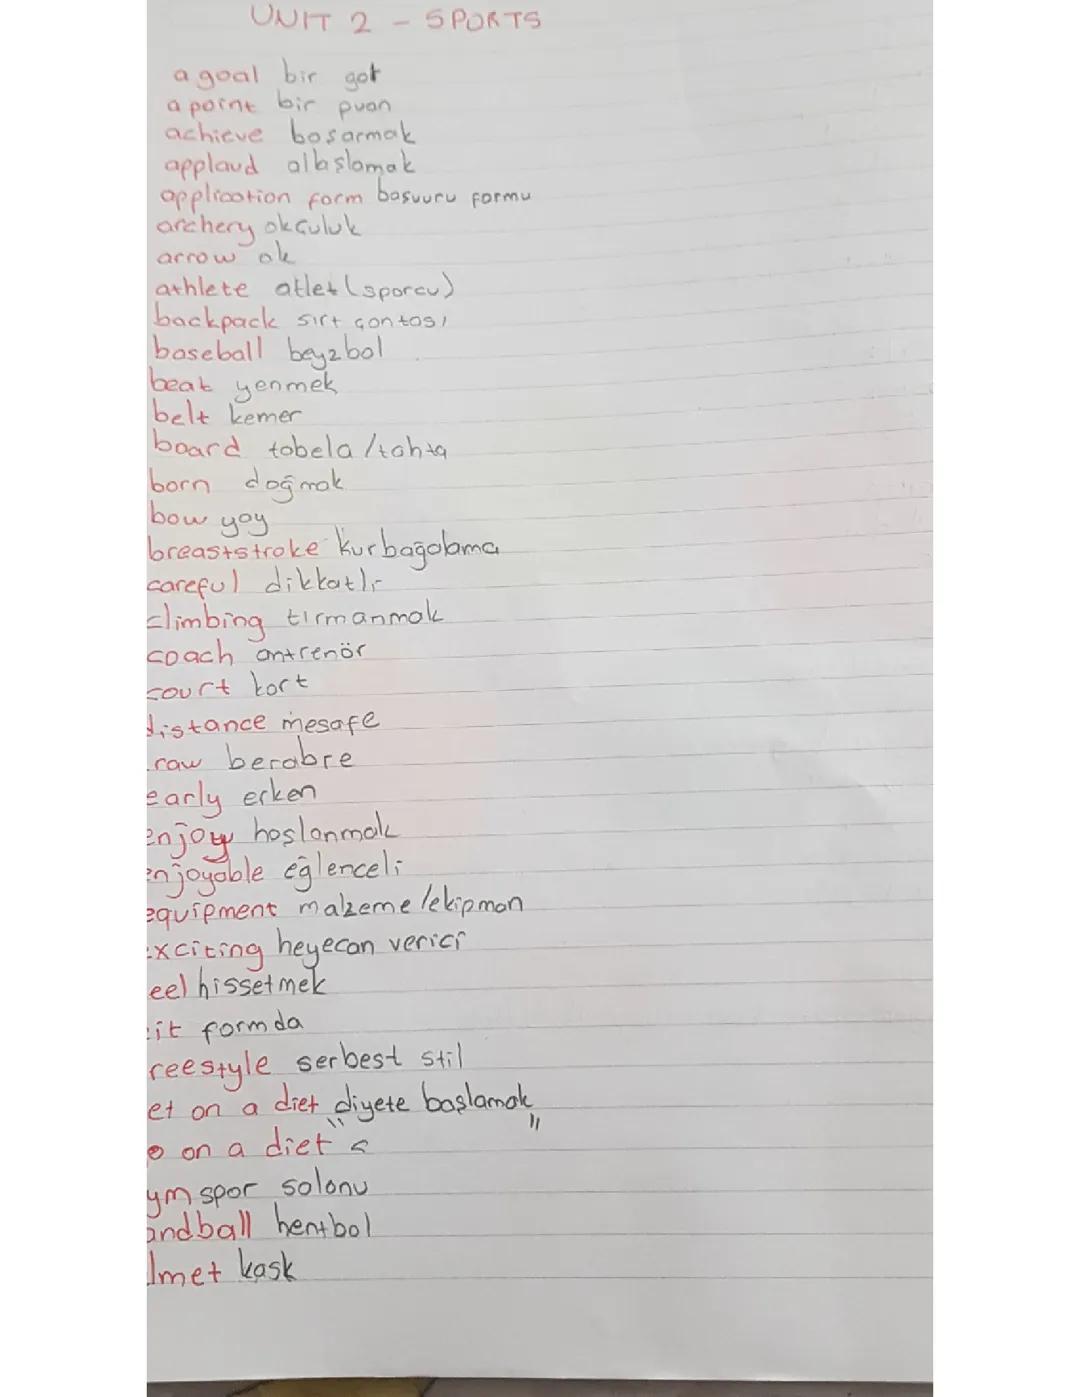 UNIT 2 - SPORTS
a goal bir gol
a point bir puan
achieve başarmak
applaud alkışlamak
application form başvuru formu
archery okçuluk
arrow ok
athlete atlet (sporcu)
backpack sırt çantası
baseball beyzbol
beat yenmek
belt kemer
board tabela/tahta
born doğmak
bow yay
breaststroke kurbağalama
careful dikkatli
climbing tırmanmak
coach antrenör
court kort
distance mesafe
raw berabre
early erken
enjoy hoşlanmak
enjoyable eğlenceli
equipment malzeme/ekipman
exciting heyecan verici
eel hissetmek
it formda
reestyle serbest stil
et on a diet diyete başlamak
o on a diet " "
ym spor salonu
andball hentbol
lmet kask